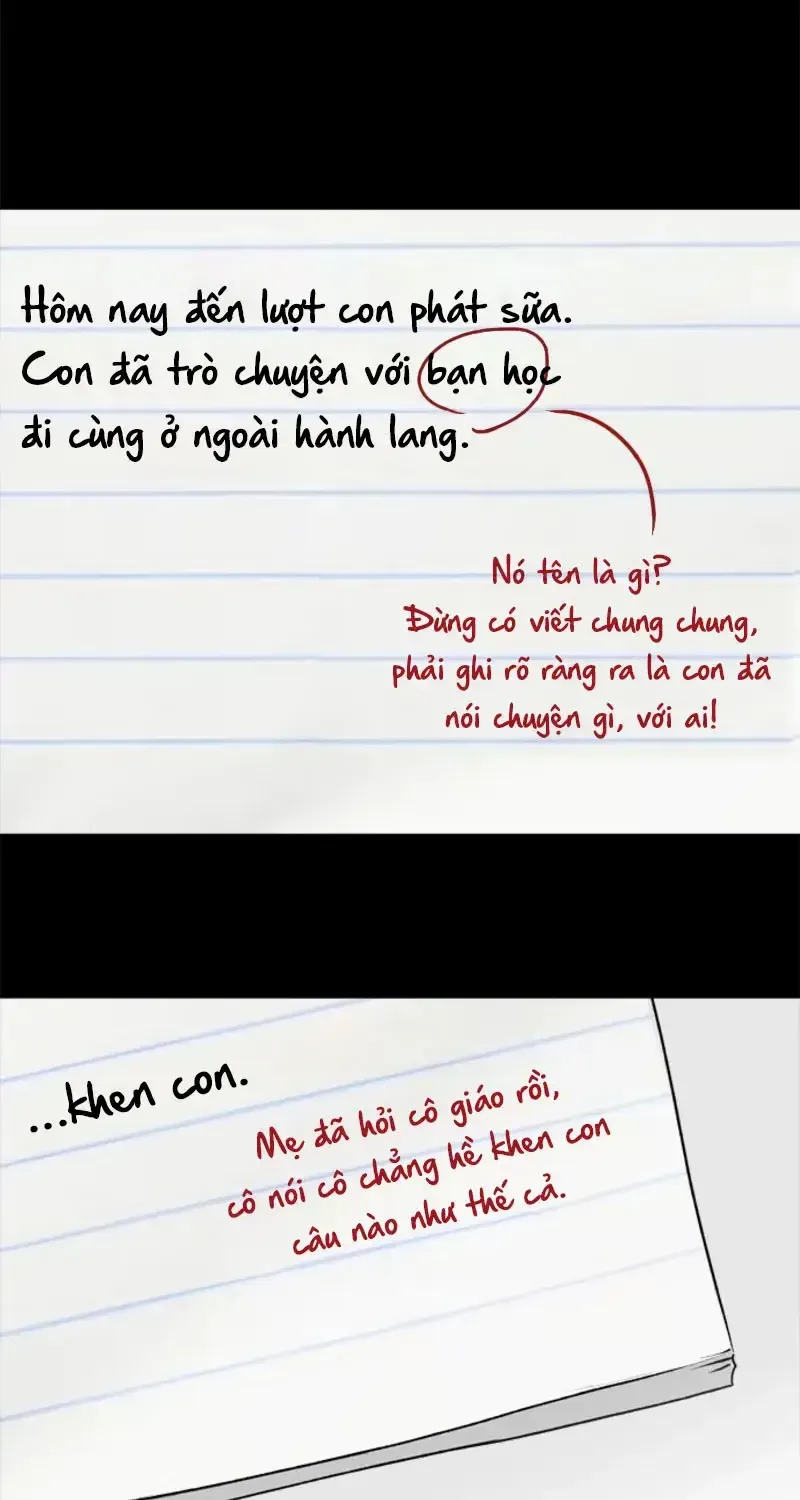 Hôm nay đến lượt con phát sữa.
Con đã trò chuyện với bạn học
đi cùng ở ngoài hành lang.
Nó tên là gì?
Đừng có viết chung chung,
phải ghi rõ ràng ra là con đã
nói chuyện gì, với ai!
...khen con.
Mẹ đã hỏi cô giáo rồi,
cô nói cô chẳng hề khen con
câu nào như thế cả.